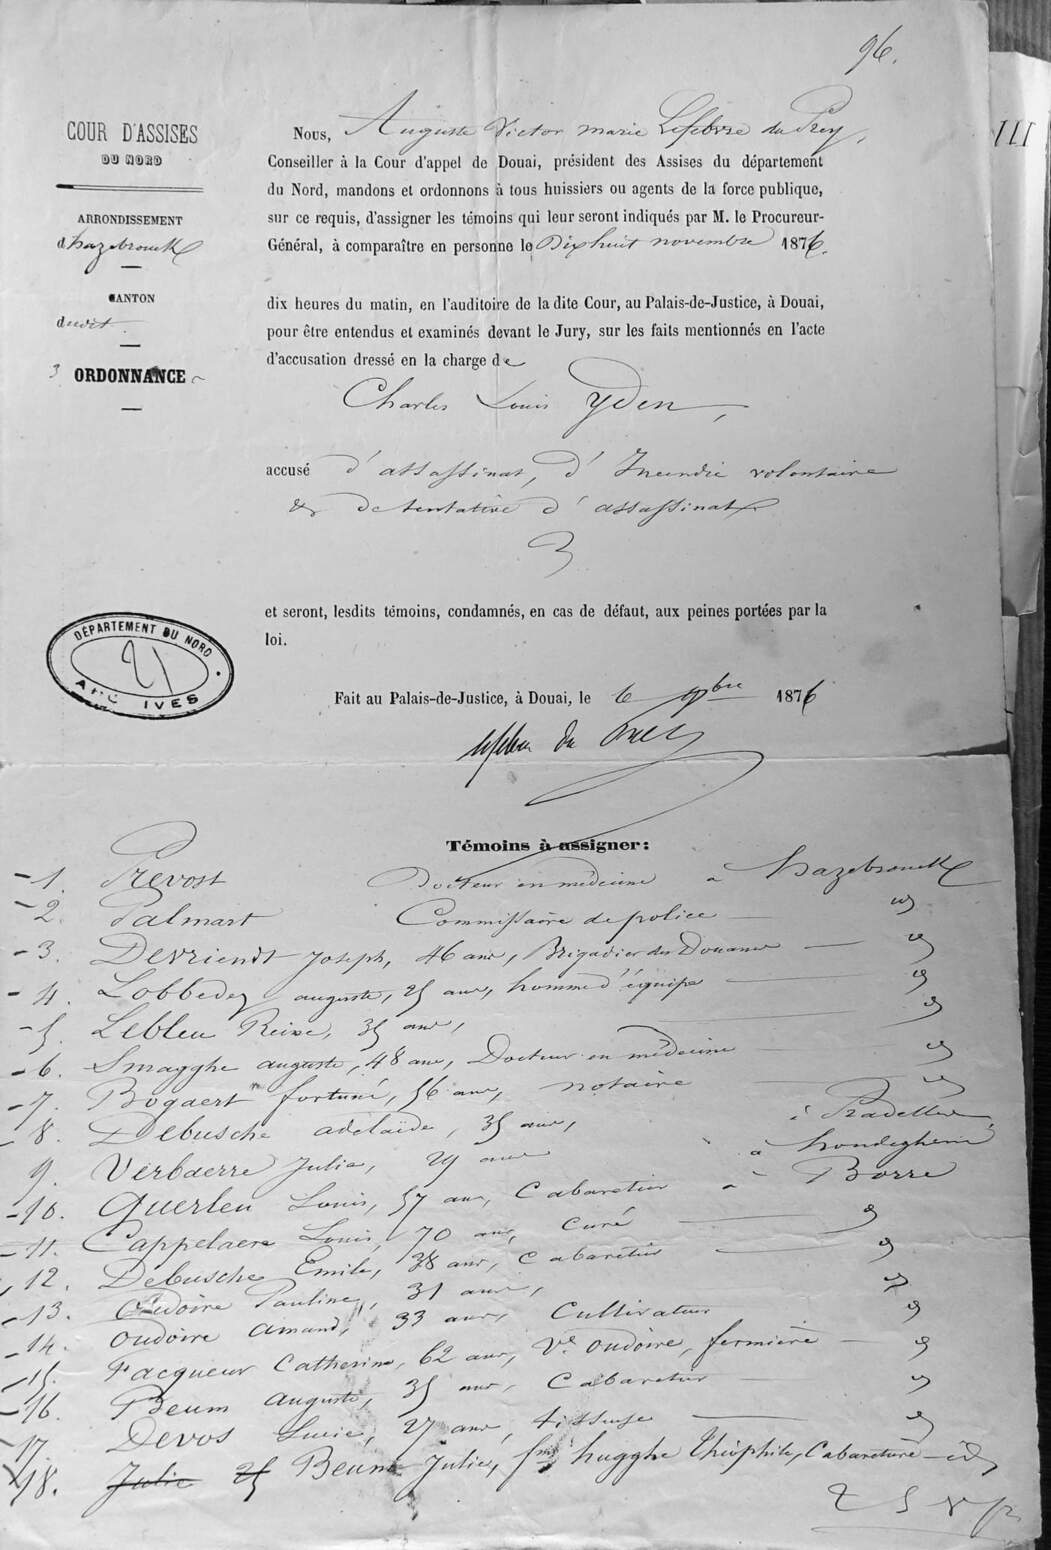 96.
COUR D'ASSISES
DU NORD
ARRONDISSEMENT
d'hazebrouck
CANTON
dudit
3 ORDONNANCE
Nous, Auguste Victor marie Lefebvre du Prey,
Conseiller à la Cour d'appel de Douai, président des Assises du département
du Nord, mandons et ordonnons à tous huissiers ou agents de la force publique,
sur ce requis, d'assigner les témoins qui leur seront indiqués par M. le Procureur-
Général, à comparaître en personne le Dix huit novembre 1876.
dix heures du matin, en l'auditoire de la dite Cour, au Palais-de-Justice, à Douai,
pour être entendus et examinés devant le Jury, sur les faits mentionnés en l'acte
d'accusation dressé en la charge de
Charles Louis Yden,
accusé d'assassinat, d'Incendie volontaire
& de tentative d'assassinat
et seront, lesdits témoins, condamnés, en cas de défaut, aux peines portées par la
loi.
DÉPARTEMENT DU NORD
21
ARCHIVES
Fait au Palais-de-Justice, à Douai, le 6 9bre 1876
Lefebvre du Prey
Témoins à assigner:
1. Prévost Docteur en médecine à hazebrouck
2. Palmart Commissaire de police — id
3. Devriendt Joseph, 46 ans, Brigadier des Douanes — id
4. Lobbedez auguste, 25 ans, homme d'équipe — id
5. Lebleu Reine, 35 ans, — id
6. Smagghe auguste, 48 ans, Docteur en médecine — id
7. Bogaert fortuné, 56 ans, notaire — id
8. Debusche adélaïde, 35 ans, à Pradelles
9. Verbaerre Julie, 29 ans à hondeghem
10. Querleu Louis, 57 ans, Cabaretier à Borre
11. Cappelaere Louis, 70 ans, Curé — id
12. Debusche Emile, 38 ans, Cabaretier — id
13. Oudoire Pauline, 31 ans, id
14. Oudoire amand, 33 ans, Cultivateur id
15. Facqueur Catherine, 62 ans, Ve oudoire, fermière — id
16. Beum auguste, 35 ans, Cabaretier — id
17. Devos Lucie, 27 ans, tisseuse — id
18. Julie 25 Beum Julie, fme hugghe Théophile, Cabaretière — id
T S V P